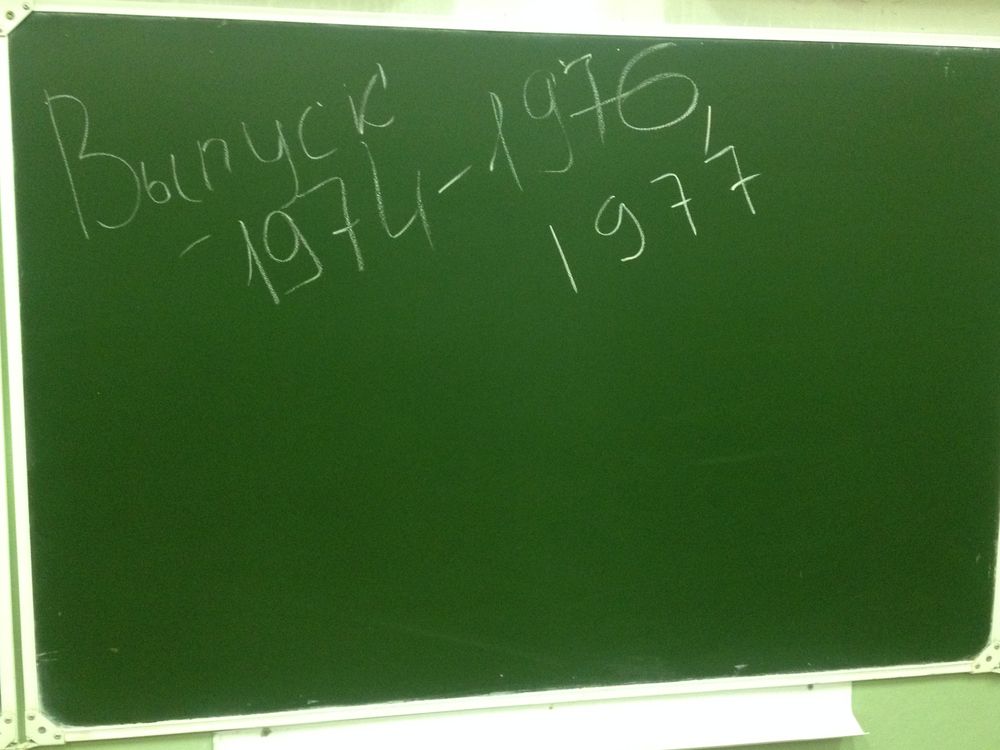 Выпуск
- 1974 - 1976,
1977